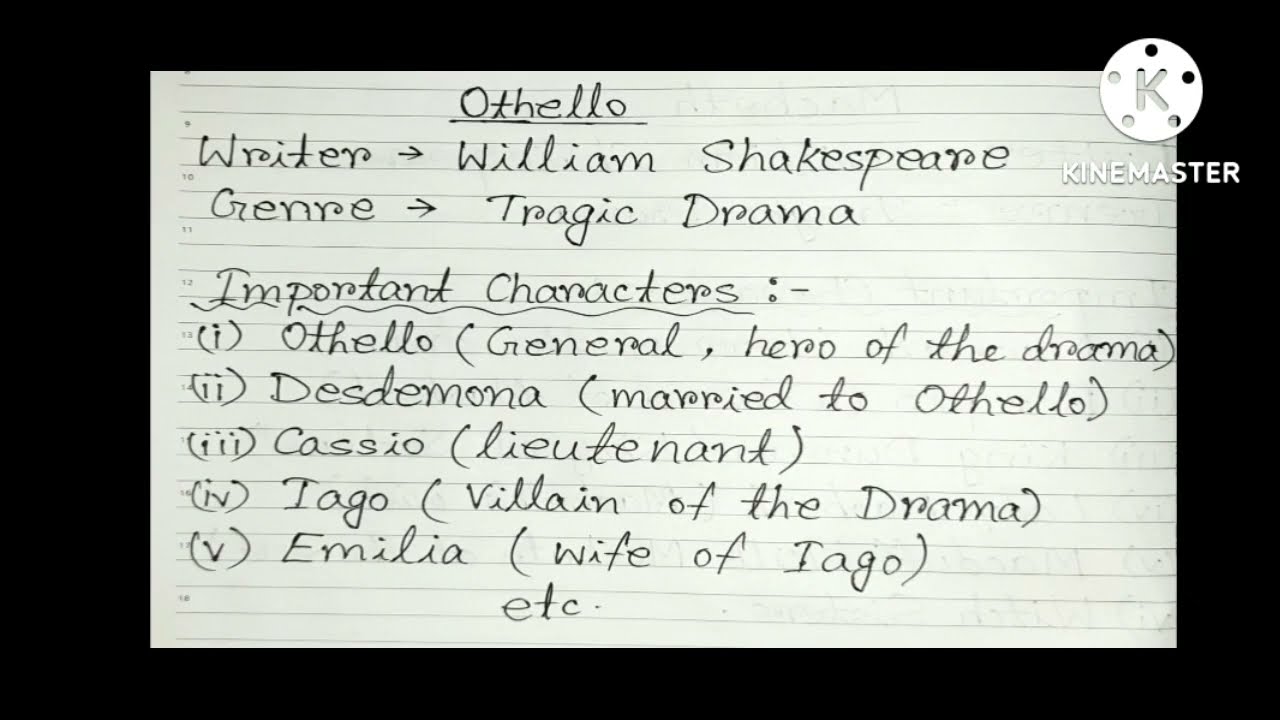 Othello
Writer → William Shakespeare
Genre → Tragic Drama
Important Characters :-
(i) Othello (General, hero of the drama)
(ii) Desdemona (married to Othello)
(iii) Cassio (lieutenant)
(iv) Iago (Villain of the Drama)
(v) Emilia (wife of Iago)
etc.
K
KINEMASTER
9
10
11
12
13
18